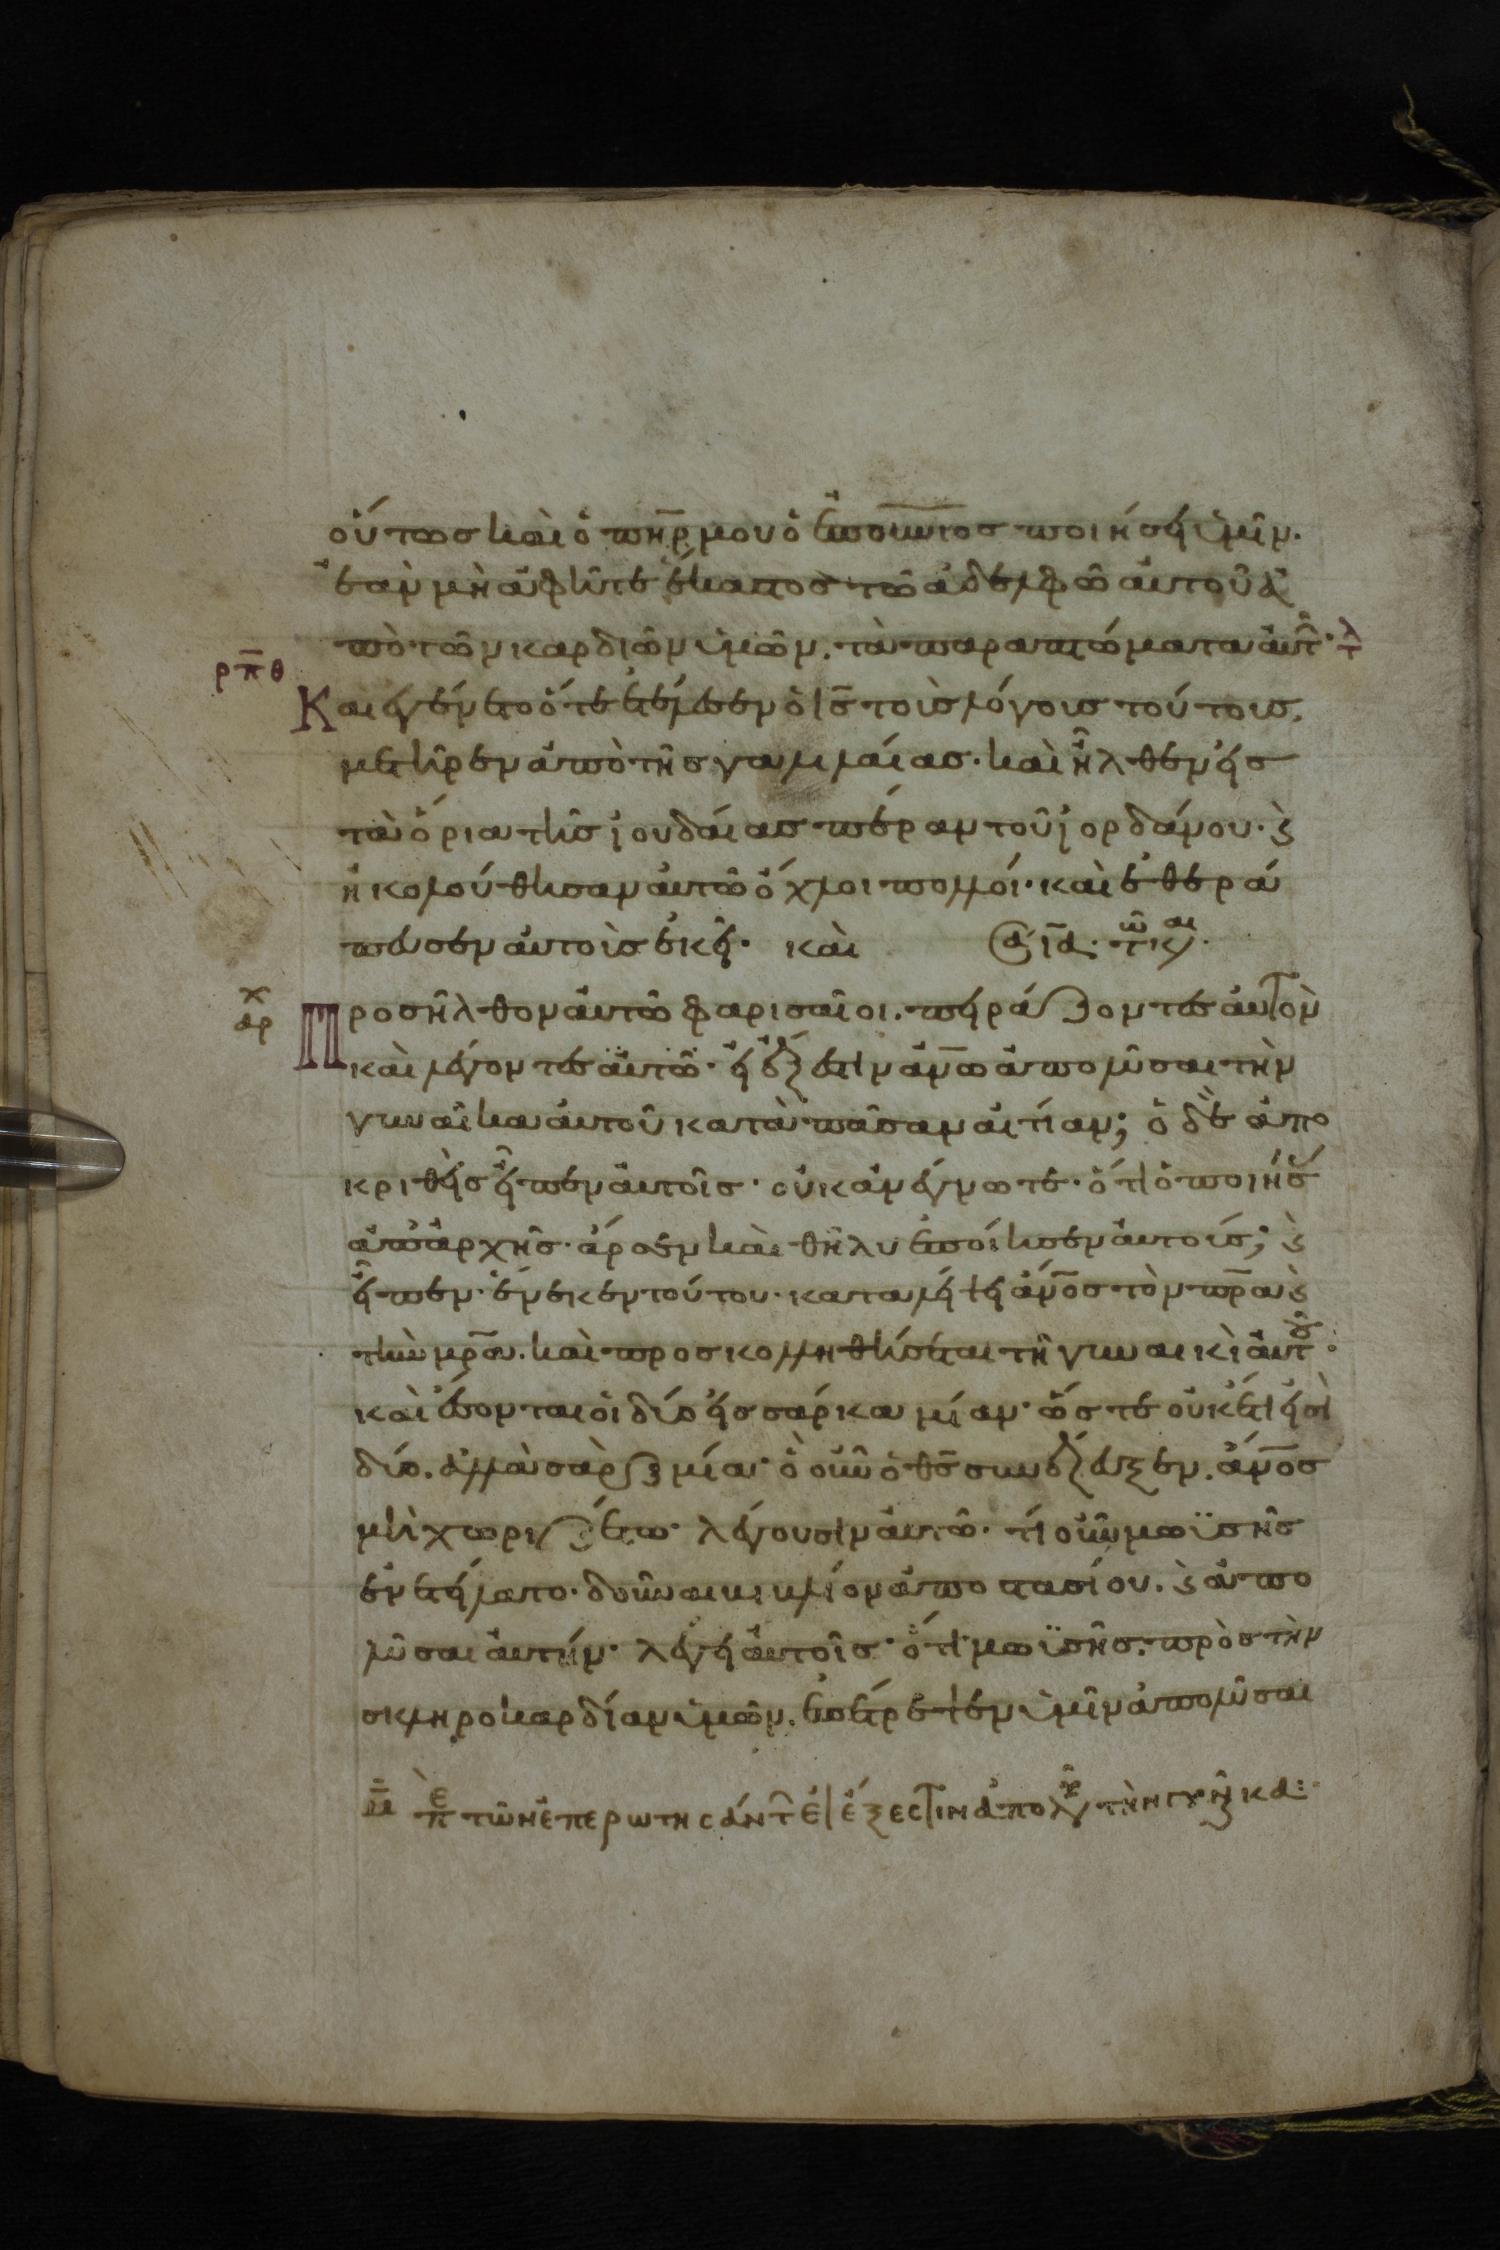 οὕτως καὶ ὁ πη̅ρ μου ὁ ἐποὐ̅νιος ποιήσει ὑμῖν.
ἐὰν μὴ ἀφῆτε ἕκαστος τῶ ἀδελφῶ αὐτοῦ ἀ
πὸ τῶν καρδιῶν ὑμῶν. τὰ παραπτώματα αὐτ̑
ρπ̅θ
Και ἐγένετο ὅτε ἐτέλεσεν ὁ ισ̅ τοὺς λόγους τούτους,
μετῆρεν ἀπὸ τῆς γαλιλαίας. καὶ ἦλθεν εἰς
τὰ ὅρια τῆς ἰουδαίας πέραν τοῦ ἰορδάνου. ϗ
ἠκολούθησαν αὐτῶ ὄχλοι πολλοί. καὶ ἐθερά
πευσεν αὐτοὺς ἐκεῖ. καὶ
αρχ
Προσῆλθον αὐτῶ φαρισαῖοι. πειράζοντες αὐτὸν
καὶ λέγοντες αὐτῶ. εἰ ἔξεστιν ἀν̅ω ἀπολῦσαι τὴν
γυναῖκα αὐτοῦ κατὰ πᾶσαν αἰτίαν; ὁ δὲ ἀπο
κριθεὶς εἶπεν αὐτοῖς. οὐκ ἀνέγνωτε. ὅτι ὁ ποιήσ
ἀπ ἀρχῆς. ἄρσεν καὶ θῆλυ ἐποίησεν αὐτούς; ϗ
εἶπεν. ἕνεκεν τούτου. καταλείψει ἄν̅ος τὸν πρ̅α ϗ
τὴν μρ̅α. καὶ προσκολληθήσεται τῆ γυναικὶ αὐτȣ͂.
καὶ ἔσονται οἱ δύο εἰς σάρκα μίαν. ὥστε οὐκέτι εἰσὶ
δύο. ἀλλὰ σὰρξ μία. ὃ οὖν ὁ θσ̅ συνέζευξεν. ἄν̅ος
μὴ χωριζέτω. λέγουσιν αὐτῶ. τί οὖν μωϋσῆς
ἐνετείλατο. δοῦναι βιβλίον ἀποστασίου. ϗ ἀπο
λῦσαι αὐτήν. λέγει αὐτοῖς. ὅτι μωϋσῆς. πρὸς τὴν
σκληροκαρδίαν ὑμῶν. ἐπέτρεψεν ὑμῖν ἀπολῦσαι
μ̅ πε τῶν ἐπερωτησάντ ἐι ἔξεστιν ἀπολῦ τὴν γυνῆκα